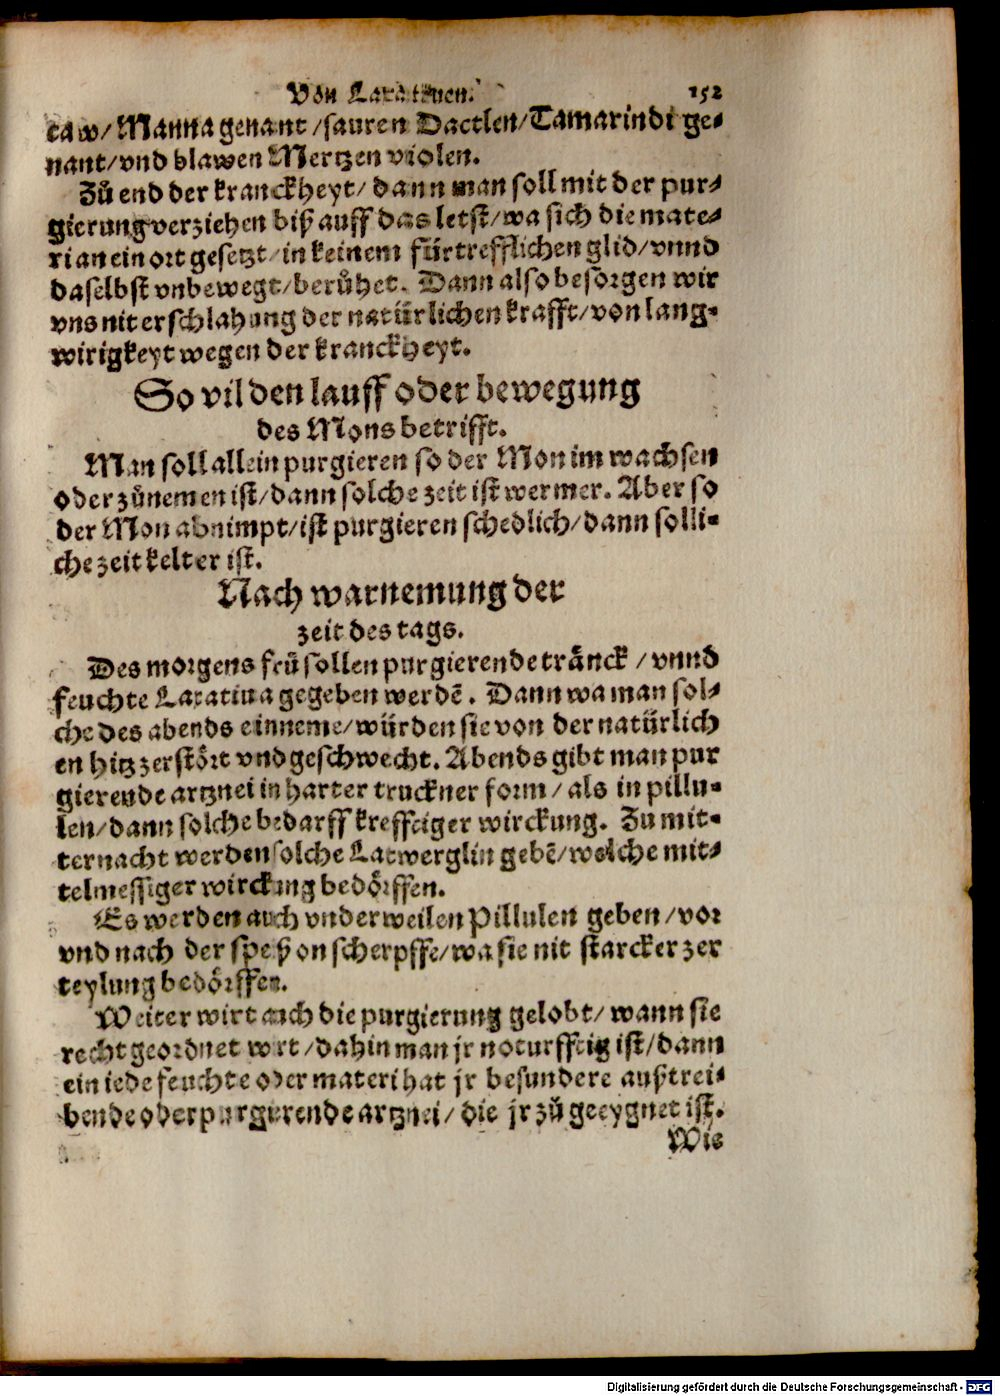 Von Laxatiuen. 152
taw/ Manna genant/ sauren Dactlen/ Tamarindi ge⸗
nant/ vnd blawen Mertzen violen.
Zů end der kranckheyt/ dann man soll mit der pur⸗
gierung verziehen biß auff das letst/ wa sich die mate⸗
rian ein ort gesetzt/ in keinem fürtrefflichen glid/ vnnd
daselbst vnbewegt/ berůhet. Dann also besorgen wir
vns nit erschlahung der natürlichen krafft/ von lang⸗
wirigkeyt wegen der kranckheyt.
So vil den lauff oder bewegung
des Mons betrifft.
Man soll allein purgieren so der Mon im wachsen
oder zůnemen ist/ dann solche zeit ist wermer. Aber so
der Mon abnimpt/ ist purgieren schedlich/ dann solli⸗
che zeit kelter ist.
Nach warnemung der
zeit des tags.
Des morgens frů sollen purgierende tränck/ vnnd
feuchte Laxatiua gegeben werdē. Dann wa man sol⸗
che des abends einneme/ würden sie von der natürlich
en hitz zerstört vnd geschwecht. Abends gibt man pur
gierende artznei in harter truckner form/ als in pillu⸗
len/ dann solche bedarff krefftiger wirckung. Zu mit⸗
ternacht werden solche Latwerglin gebē/ welche mit⸗
telmessiger wirckung bedörffen.
Es werden auch vnderweilen Pillulen geben/ vor
vnd nach der speiß on scherpffe/ wa sie nit starcker zer
teylung bedörffen.
Weiter wirt auch die purgierung gelobt/ wann sie
recht geordnet wirt/ dahin man jr noturfftig ist/ dann
ein iede feuchte oder materi hat jr besundere außtrei⸗
bende oder purgierende artznei/ die jr zů geeygnet ist.
Wie
Digitalisierung gefördert durch die Deutsche Forschungsgemeinschaft - DFG